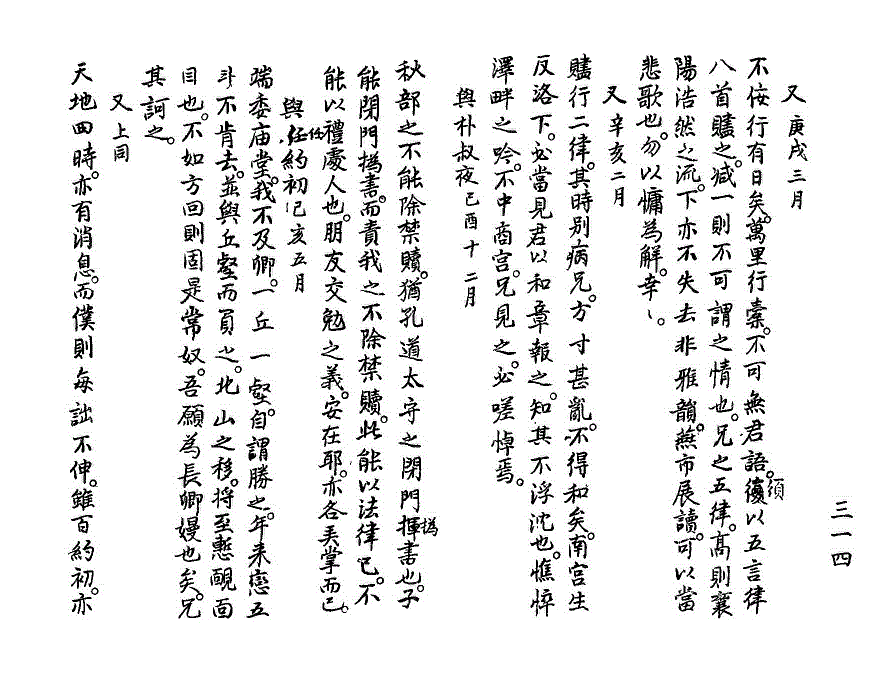 又 庚戌三月
不佞行有日矣。萬里行橐。不可無君語。須以五言律
八首贐之。減一則不可謂之情也。兄之五律。高則襄
陽浩然之流。下亦不失去非雅韻。燕市展讀。可以當
悲歌也。勿以慵為解。幸々。
又 辛亥二月
贐行二律。其時別病兄。方寸甚亂。不得和矣。南宮生
反洛下。必當見君以和章報之。知其不浮沈也。憔悴
澤畔之吟。不中商宮。兄見之。必嗟悼焉。
與朴叔夜 己酉十二月
秋部之不能除禁贖。猶孔道太守之閉門揮書也。子
能閉門撝書。而責我之不除禁贖。此能以法律己。不
能以禮處人也。朋友交勉之義。安在耶。亦各天掌而已。
與任約初 己亥五月
端委庙堂。我不及卿。一丘一壑。自謂勝之。年来戀五
斗不肯去。並與丘壑而負之。北山之移。将至慙靦面
目也。不如方回則固是常奴。吾願為長卿嫚也矣。兄
其訶之。
又 上同
天地四時。亦有消息。而僕則每詘不伸。雖百約初。亦
三一四